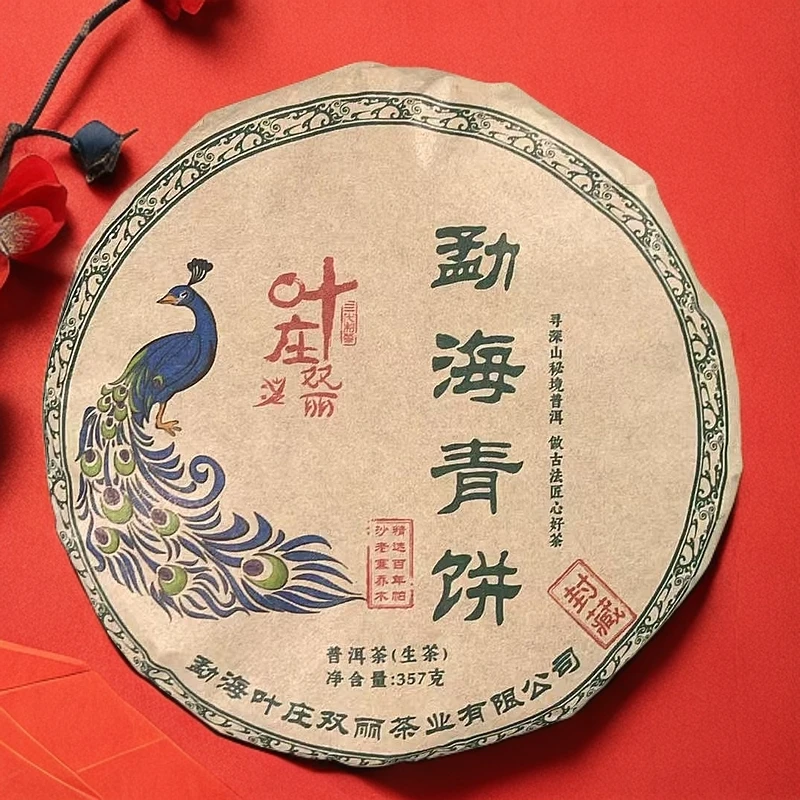 勐海青饼
寻深山秘境普洱 做古法匠心好茶
叶庄
双丽
精选百年帕
沙老重乔木
封藏
普洱茶(生茶)
净含量:357克
勐海叶庄双丽茶业有限公司